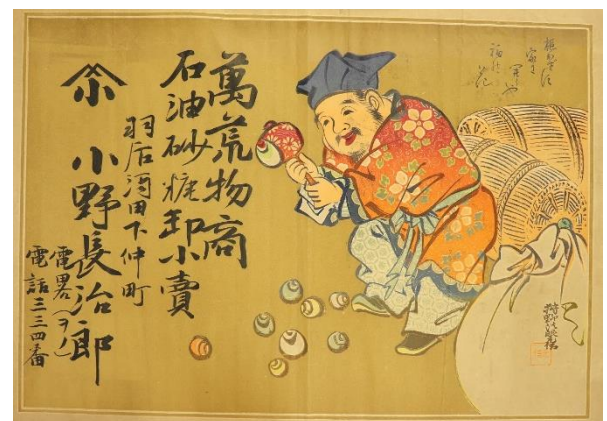 萬荒物商
石油砂糖卸小賣
羽后酒田下仲町
小野長治郎
電畧(ヲ)
電話三三四番